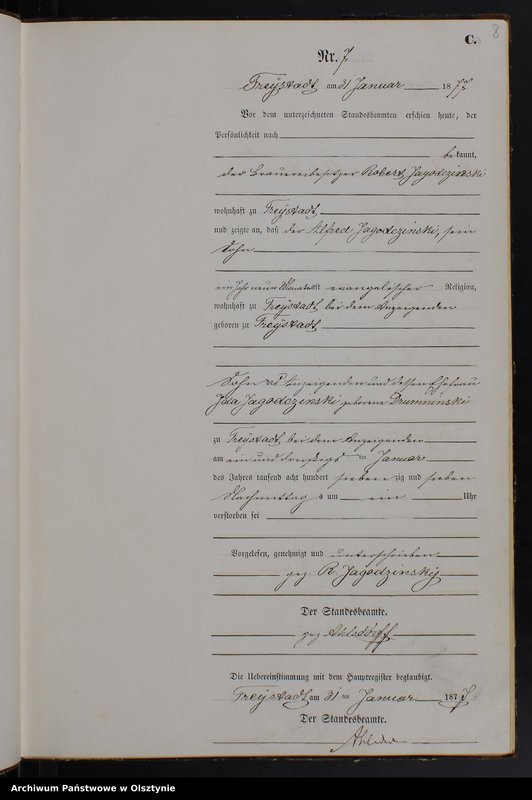 C.
8
Nr. 7
Freystadt am 31 Januar 1877
Vor dem unterzeichneten Standesbeamten erschien heute, der
Persönlichkeit nach
bekannt,
der Brauereibesitzer Robert Jagodczinski
wohnhaft zu Freystadt
und zeigte an, daß der Alfred Jagodczinski, sein
Sohn
ein Jahr neun Monate alt evangelischer Religion,
wohnhaft zu Freystadt bei dem Anzeigenden
geboren zu Freystadt
Sohn des Anzeigenden und dessen Ehefrau
Ida Jagodczinski geborene
zu Freystadt bei dem Anzeigenden
am ein und dreißigsten Januar
des Jahres tausend acht hundert siebenzig und sieben
Nachmittags um ein Uhr
verstorben sei
Vorgelesen, genehmigt und unterschrieben
gez. R Jagodzinsky
Der Standesbeamte.
gez Ahlsdorff
Die Uebereinstimmung mit dem Hauptregister beglaubigt.
Freystadt am 31 ten Januar 1877
Der Standesbeamte.
Archiwum Państwowe w Olsztynie